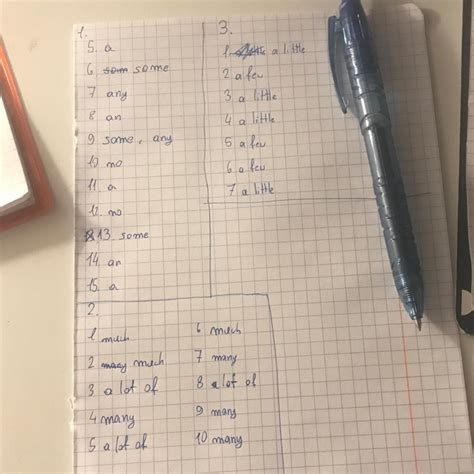 1.
5. a
6 som some
7 any
8 an
9 some, any
10 no
11. a
12. no
13. some
14. an
15. a
3.
1 a little
2 a few
3 a little
4 a little
5 a few
6 a few
7 a little
2.
1 much
2 many much
3 a lot of
4 many
5 a lot of
6 much
7 many
8 a lot of
9 many
10 many